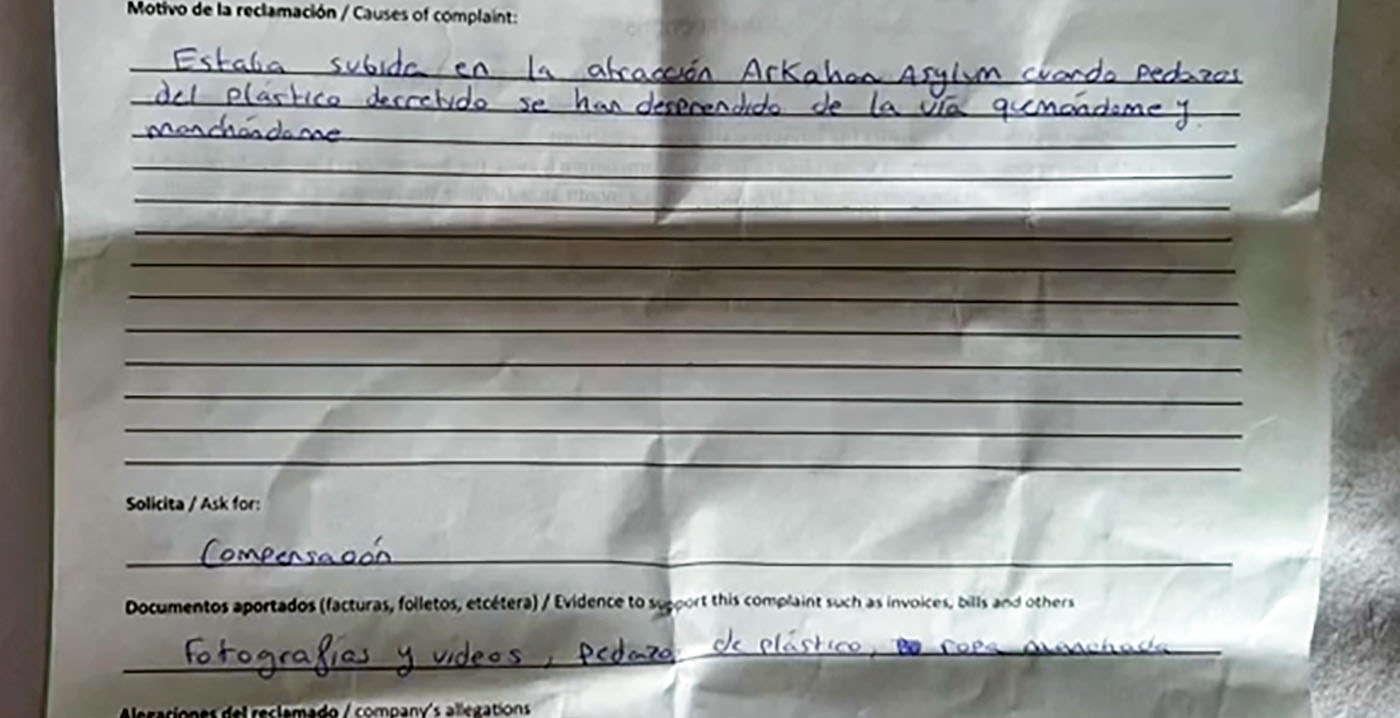 Motivo de la reclamación / Causes of complaint:
Estaba subida en la atracción Arkahan Asylum cuando pedazos
del plástico derretido se han desprendido de la vía quemándome y
manchándome
Solicita / Ask for:
Compensación
Documentos aportados (facturas, folletos, etcétera) / Evidence to support this complaint such as invoices, bills and others
Fotografías y videos, pedazo de plástico, ropa manchada
Alegaciones del reclamado / company's allegations